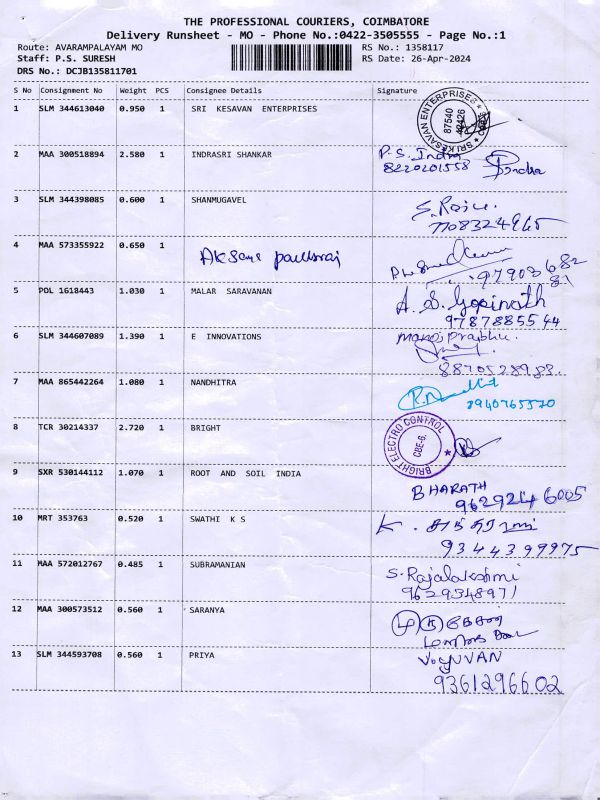 THE PROFESSIONAL COURIERS, COIMBATORE
Delivery Runsheet - MO - Phone No.:0422-3505555 - Page No.:1
Route: AVARAMPALAYAM MO RS No.: 1358117
Staff: P.S. SURESH RS Date: 26-Apr-2024
DRS No.: DCJB135811701
S No Consignment No Weight PCS Consignee Details Signature
1 SLM 344613040 0.950 1 SRI KESAVAN ENTERPRISES
SRI KESAVAN ENTERPRISES 87540
2 MAA 300518894 2.580 1 INDRASRI SHANKAR P.S. Indra
8220201558
3 SLM 344398085 0.600 1 SHANMUGAVEL S. Raju
7708324965
4 MAA 573355922 0.650 1
97903682
81
5 POL 1618443 1.030 1 MALAR SARAVANAN A.S. Gopinath
9787885544
6 SLM 344607089 1.390 1 E INNOVATIONS Manoj Prabhu.
8870528983
7 MAA 865442264 1.080 1 NANDHITRA
8 TCR 30214337 2.720 1 BRIGHT
BRIGHT ELECTRO CONTROL CBE-6.
9 SXR 530144112 1.070 1 ROOT AND SOIL INDIA BHARATH
9629246005
10 MRT 353763 0.520 1 SWATHI K S K.
9344399975
11 MAA 572012767 0.485 1 SUBRAMANIAN S. Rajalakshmi
9629348971
12 MAA 300573512 0.560 1 SARANYA
13 SLM 344593708 0.560 1 PRIYA
9361296602